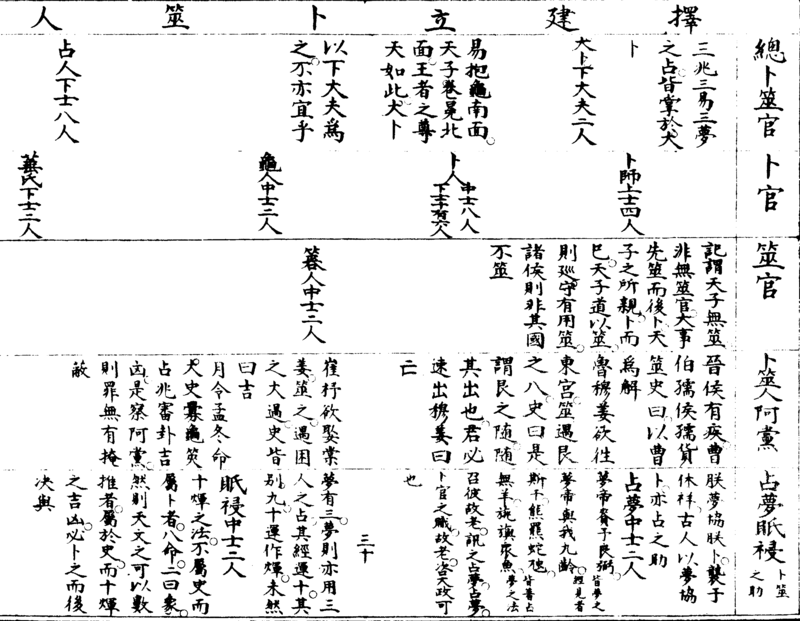 擇建立卜筮人
總卜筮官
三兆三易三夢
之占皆掌於大
卜
大卜下大夫二人
易抱龜南面
天子卷冕北
面王者之尊
天如此大卜
以下大夫為
之不亦宜乎
占人下士八人
卜官
卜師上士四人
卜人中士八人
龜人中士二人
菙氏下士二人
筮官
記謂天子無筮
非無筮官大事
先筮而後卜天
子之所親卜而
巳天子道以筮
則廵守有用筮
諸侯則非其國
不筮
簭人中士二人
卜筮人阿黨
晉侯有疾曹
伯孺侯孺貨
筮史曰以曹
為解
魯穆姜欲往
東宮筮遇艮
之八史曰是
謂艮之隨隨
其出也君必
速出穆姜曰
亡
崔杼欲娶棠
姜筮之遇困
之大過史皆
曰吉
月令孟冬命
大史釁龜筴
占兆審卦吉
凶是察阿黨
則罪無有掩
蔽
占夢眡祲
卜筮
之助
朕夢協朕卜襲于
休祥古人以夢協
卜亦占之助
占夢中士二人
夢帝賚予良弼
夢帝與我九齡
斯干熊羆蛇虺
無羊旐旟眾魚
召彼故老訊之占夢占夢
卜官之職故老咨天政可
也
夢有三夢則亦用三
人之占其經運十其
別九十運作煇未然
眡祲中士二人
十煇之法不屬史而
屬卜者八命二曰象
然則天文之可以數
推者屬於史而十煇
之吉凶必卜之而後
决與
三十